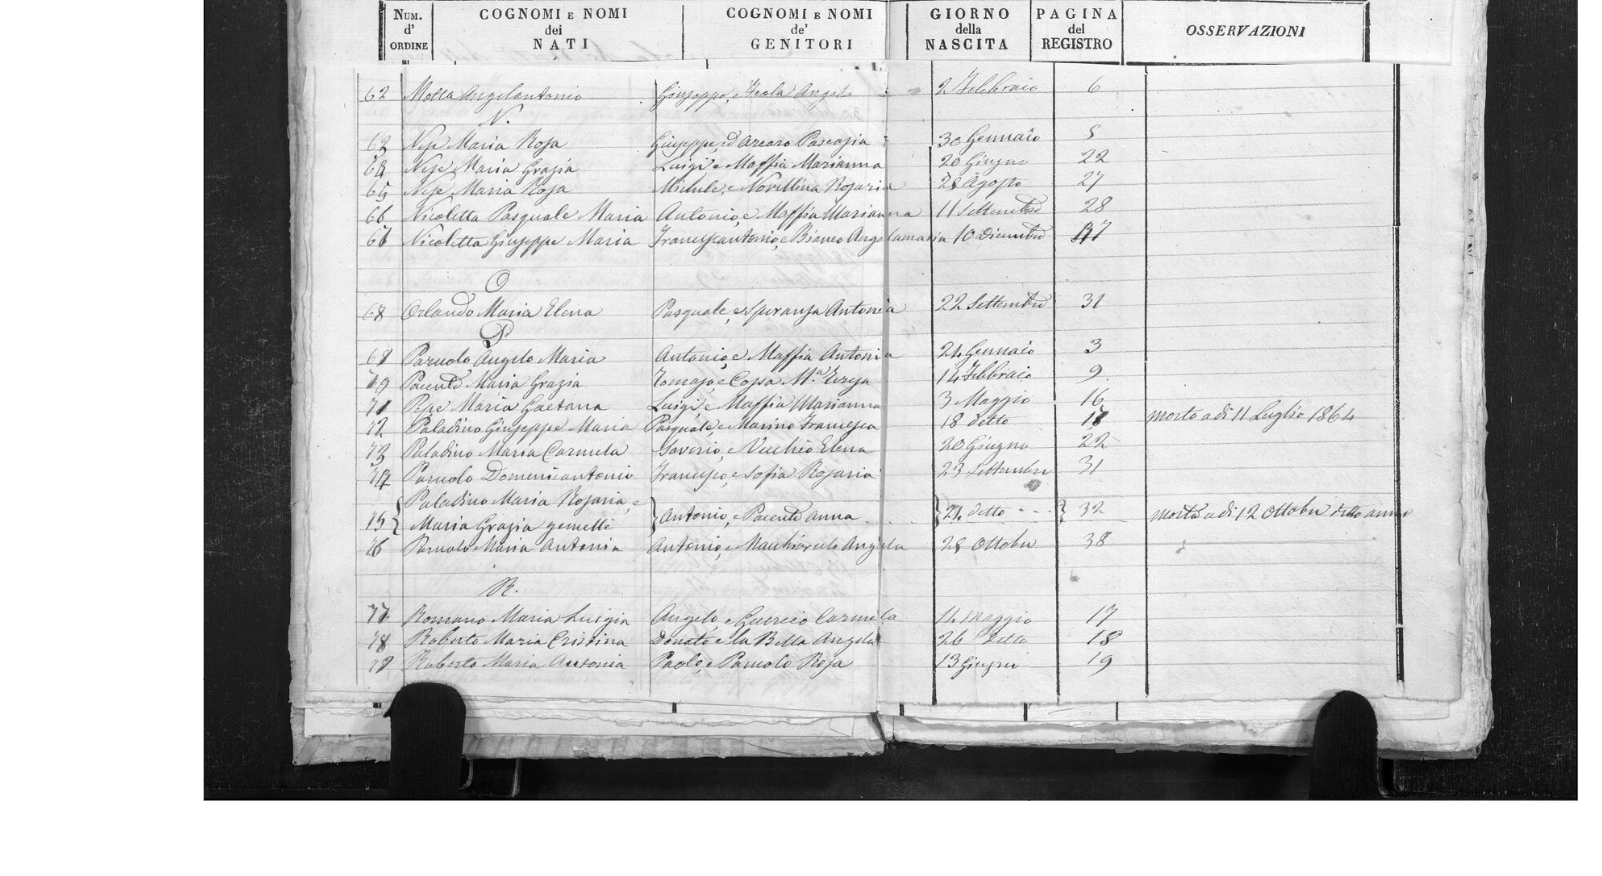 NUM. d' ORDINE COGNOMI E NOMI dei NATI COGNOMI E NOMI de' GENITORI GIORNO della NASCITA PAGINA del REGISTRO OSSERVAZIONI
62 Motta Angelantonio Giuseppe, e Feola Angela 2 Febbraio 6
N.
63 Nese Maria Rosa Giuseppe, ed Arcaro Pascasia 30 Gennaio 5
64 Nese Maria Grazia Luigi e Maffia Marianna 20 Giugno 22
65 Nese Maria Rosa Michele, e Novellina Rosaria 28 Agosto 27
66 Nicoletta Pasquale Maria Antonio, e Maffia Marianna 11 Settembre 28
67 Nicoletta Giuseppe Maria Francescantonio, e Bianco Angelamaria 10 Dicembre
O
68 Orlando Maria Elena Pasquale, e Speranza Antonia 22 Settembre 31
P
69 Paruolo Angelo Maria Antonio, e Maffia Antonia 24 Gennaio 3
70 Pacente Maria Grazia Tomaso, e Coppa M.a Teresa 14 Febbraio 9
71 Pepe Maria Gaetana Luigi, e Maffia Marianna 3 Maggio 16
72 Paladino Giuseppe Maria Pasquale, e Marino Francesca 18 detto 18 morto a di 11 Luglio 1864
73 Paladino Maria Carmela Saverio, e Vecchio Elena 20 Giugno 22
74 Paruolo Domenicantonio Francesco, e Sofia Rosaria 23 Settembre 31
75 Paladino Maria Rosaria, e
Maria Grazia gemelle Antonio, e Pacente Anna 24 detto 32 morta a di 12 Ottobre detto anno
76 Paruolo Maria Antonia Antonio, e Angela 28 Ottobre 38
R.
77 Romano Maria Luigia Angelo, e Guercio Carmela 14 Maggio 17
78 Roberto Maria Cristina Donato, e la Bella Angela 26 detto 18
79 Roberto Maria Antonia Paolo, e Paruolo Rosa 13 Giugno 19